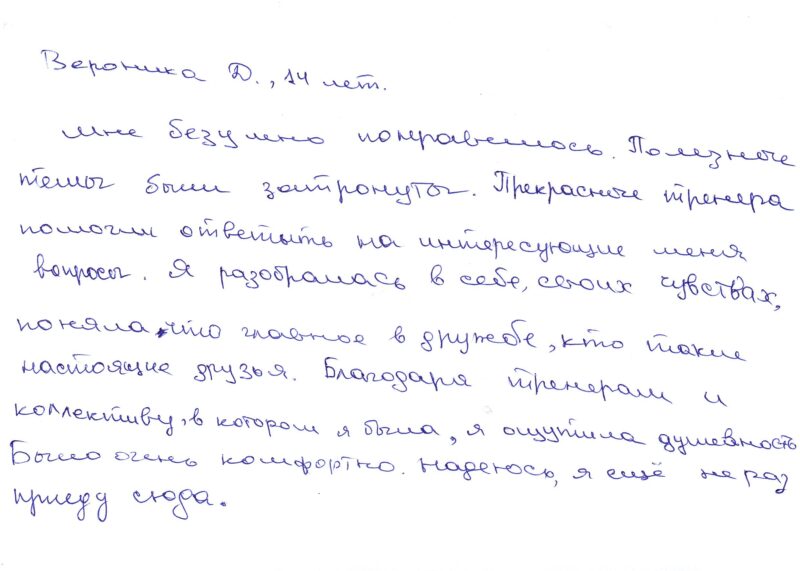 Вероника Д., 14 лет.
мне безумно понравилось. Полезные
темы были затронуты. Прекрасные тренера
помогли ответить на интересующие меня
вопросы. Я разобралась в себе, своих чувствах,
поняла, что главное в дружбе, кто такие
настоящие друзья. Благодаря тренерам и
коллективу, в котором я была, я ощутила душевность
Было очень комфортно. Надеюсь, я ещё не раз
приеду сюда.